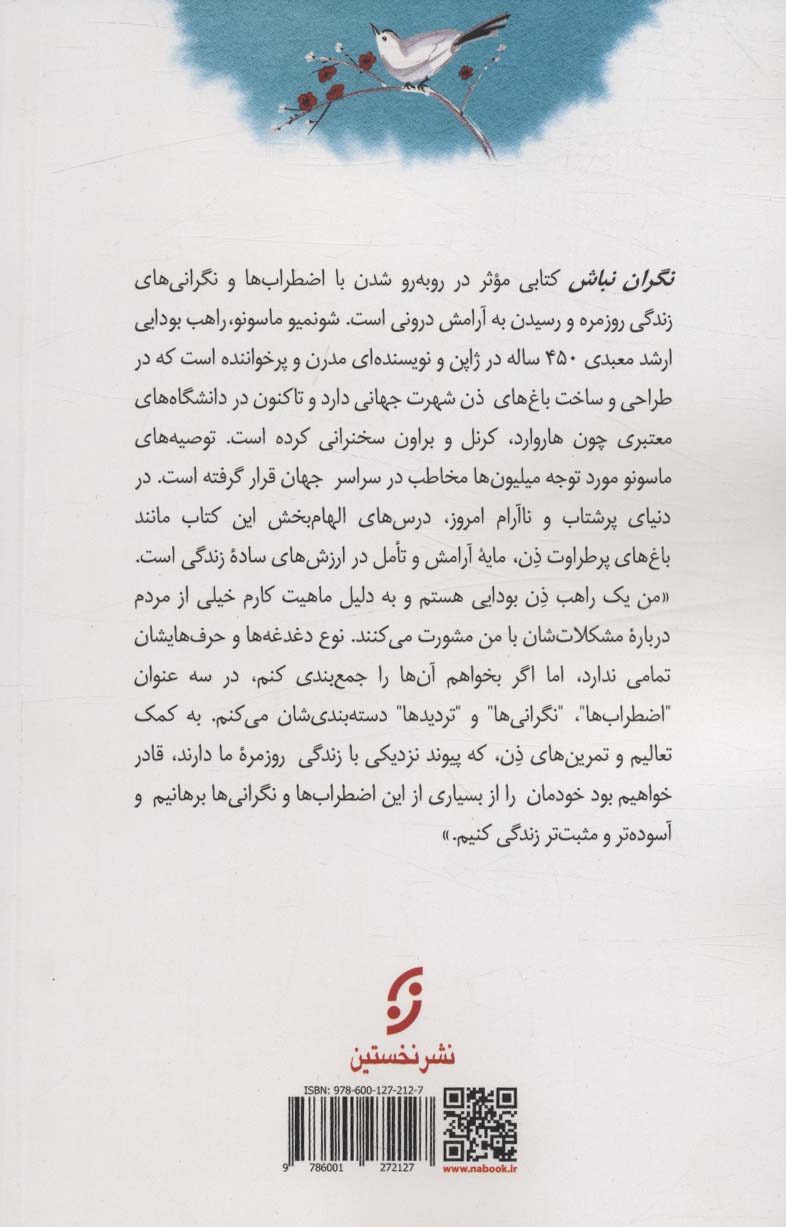 نگران نباش کتابی مؤثر در روبه‌رو شدن با اضطراب‌ها و نگرانی‌های
زندگی روزمره و رسیدن به آرامش درونی است. شونمیو ماسونو، راهب بودایی
ارشد معبدی ۴۵۰ ساله در ژاپن و نویسنده‌ای مدرن و پرخواننده است که در
طراحی و ساخت باغ‌های ذن شهرت جهانی دارد و تاکنون در دانشگاه‌های
معتبری چون هاروارد، کرنل و براون سخنرانی کرده است. توصیه‌های
ماسونو مورد توجه میلیون‌ها مخاطب در سراسر جهان قرار گرفته است. در
دنیای پرشتاب و ناآرام امروز، درس‌های الهام‌بخش این کتاب مانند
باغ‌های پرطراوت ذِن، مایهٔ آرامش و تأمل در ارزش‌های سادهٔ زندگی است.
«من یک راهب ذِن بودایی هستم و به دلیل ماهیت کارم خیلی از مردم
دربارهٔ مشکلات‌شان با من مشورت می‌کنند. نوع دغدغه‌ها و حرف‌هایشان
تمامی ندارد، اما اگر بخواهم آن‌ها را جمع‌بندی کنم، در سه عنوان
"اضطراب‌ها"، "نگرانی‌ها" و "تردیدها" دسته‌بندی‌شان می‌کنم. به کمک
تعالیم و تمرین‌های ذِن، که پیوند نزدیکی با زندگی روزمرهٔ ما دارند، قادر
خواهیم بود خودمان را از بسیاری از این اضطراب‌ها و نگرانی‌ها برهانیم و
آسوده‌تر و مثبت‌تر زندگی کنیم.»
نشر نخستین
ISBN: 978-600-127-212-7
9 786001 272127
www.nabook.ir